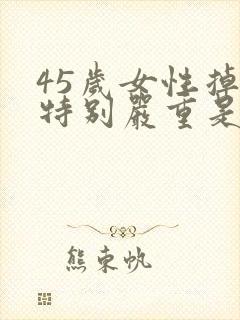 45歲女性掉
特别嚴重是
熊東帆